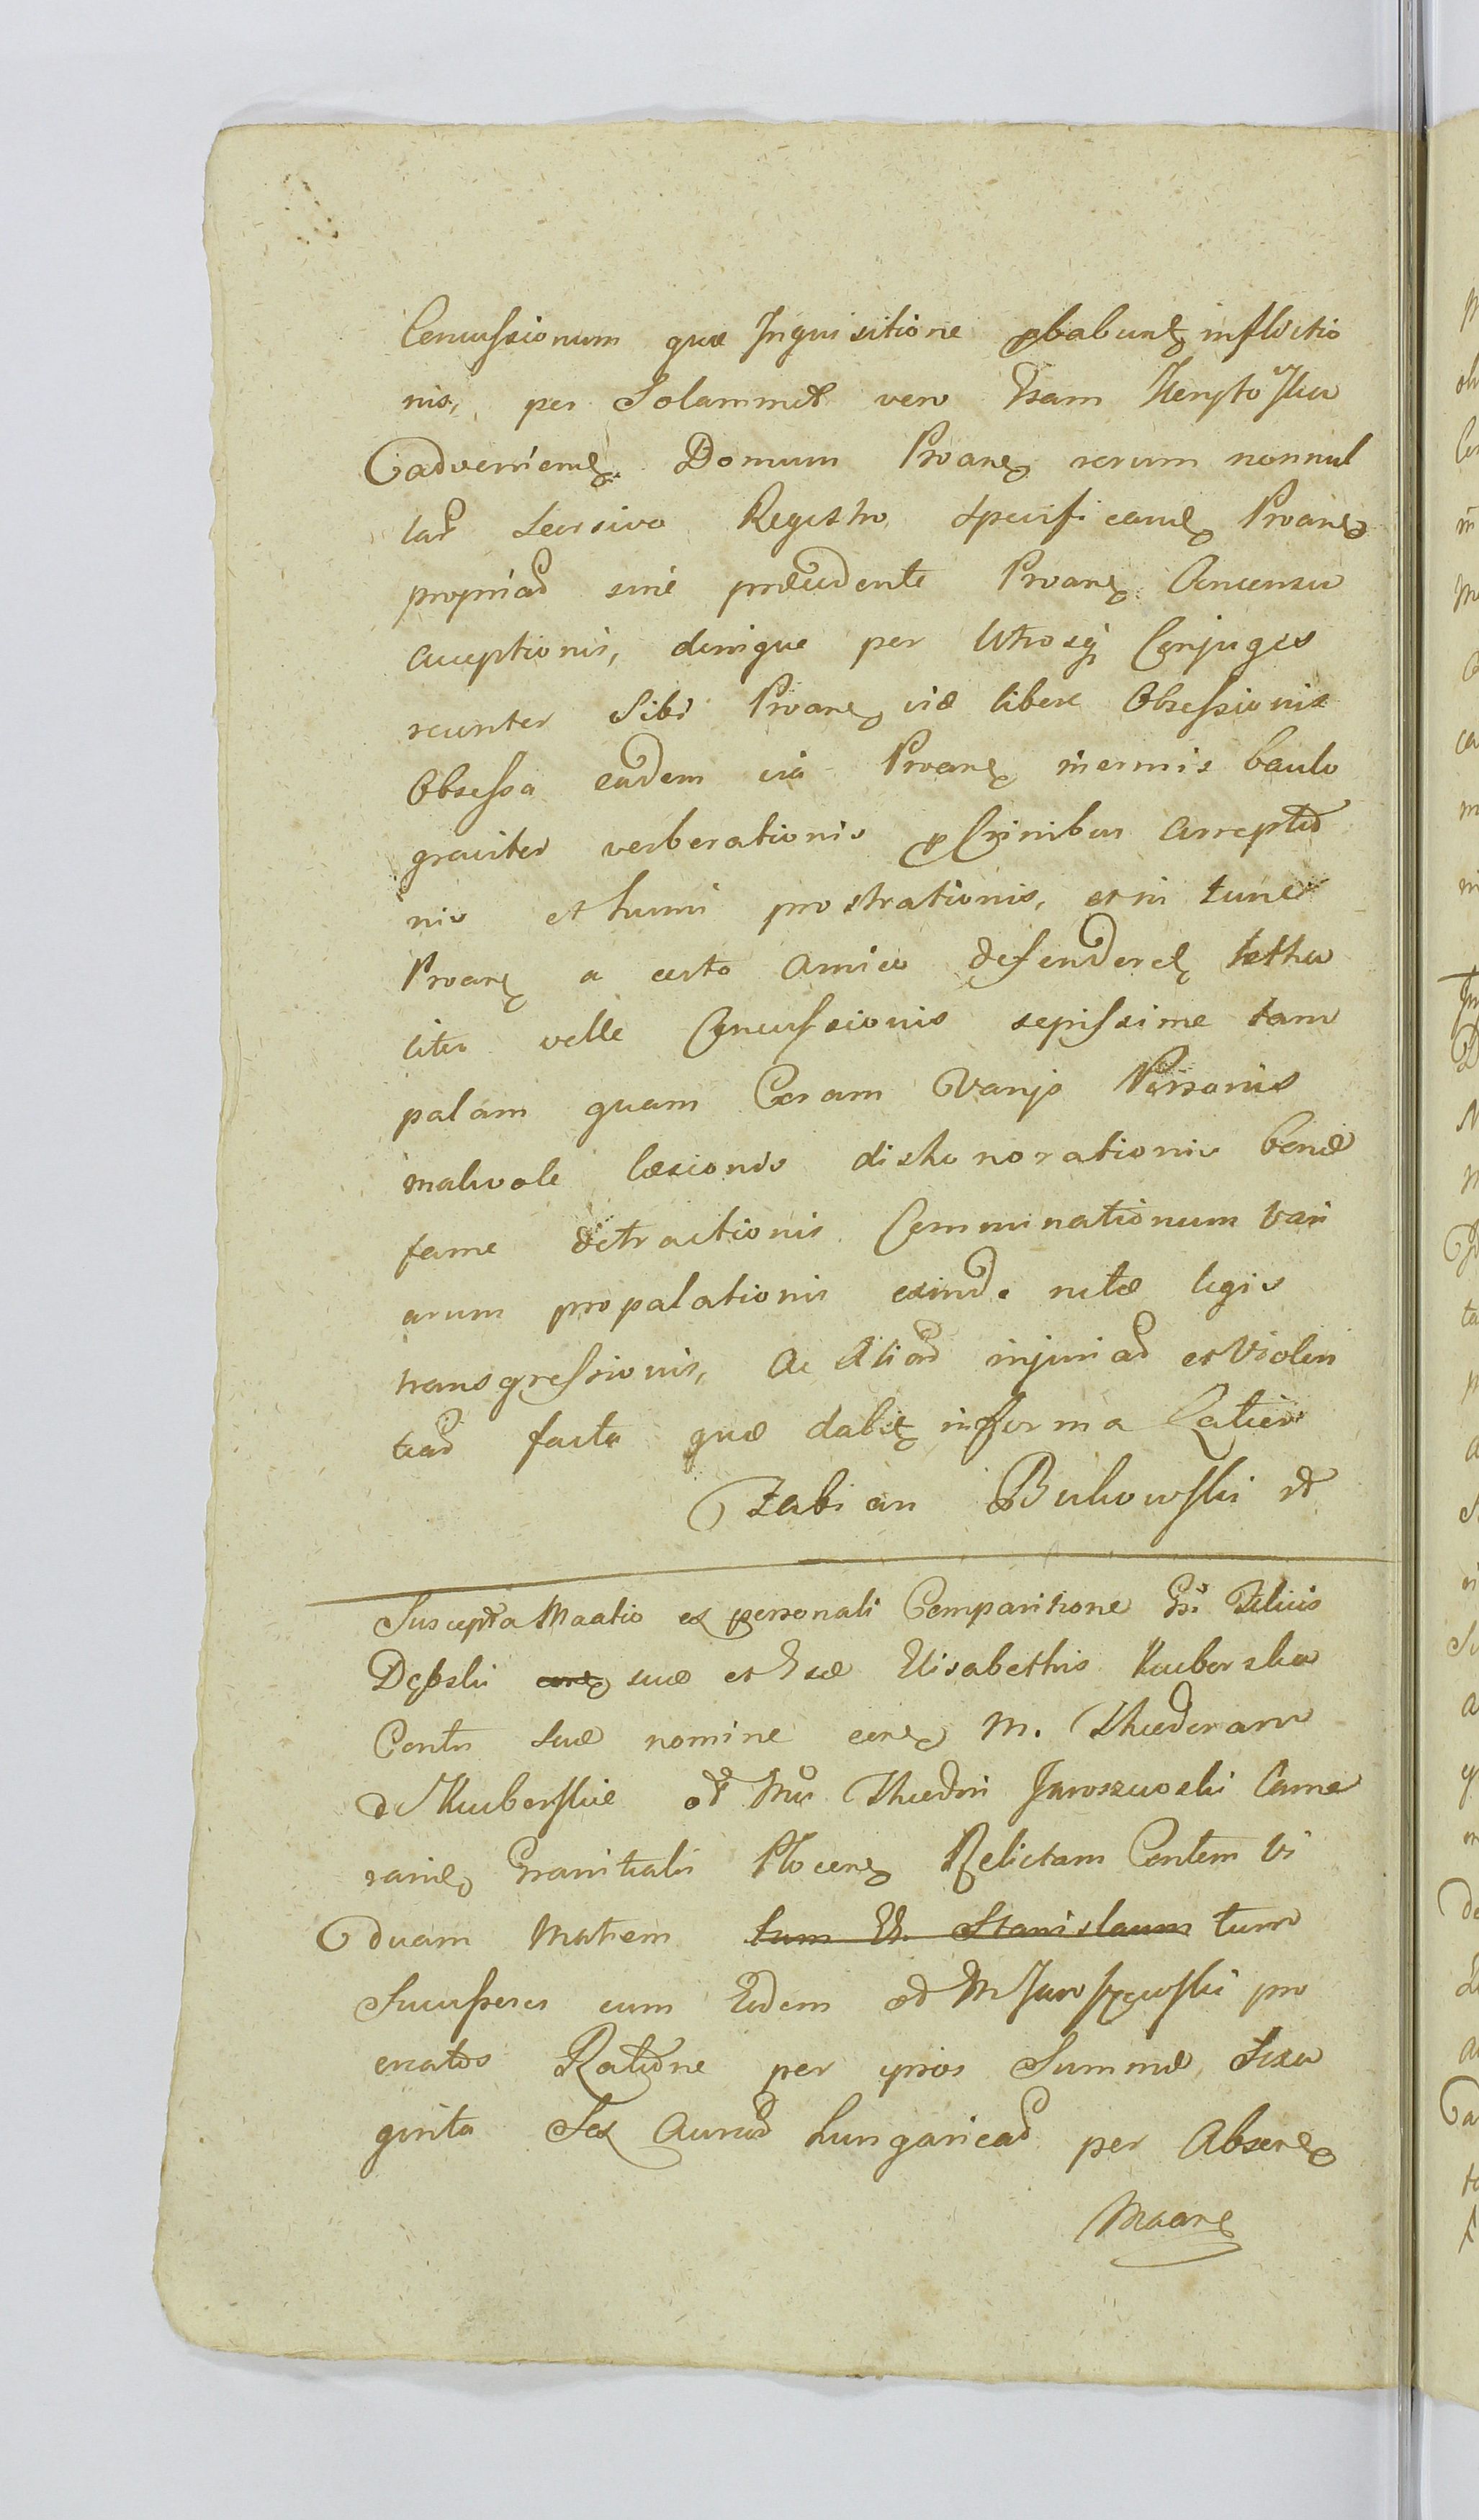 Concussionum quæ Inquisitione probabunt inflictio
nis, per Solammet vero Gsam
advenient Domum Proant rerum nonnul
lar seorsivo Registro specificant Proant
propriar sine præcedente Proant Concensu
acceptionis, denique per Utrosq Conjuges
recenter Sibi Proant viæ libere Obsessionis
Obsessa eadem via Proant inermis baculo
graviter verberationis p Crinibus arreptio
nis et humi prostrationis, et ni tunc
Proant a certo Amico defenderet letha
liter velle Concussionis sepissime tam
palam quam Coram Varijs Personis
malevole læsionis dishonorationis bonæ
fame detractionis Comminationum vari
arum propalationis exinde notæ legis
transgressionis, ac Aliar injuriar et Violen
tiar facta quæ dabit in forma Latior
Fabian Bukowski

Suscepta Maatio ex personali Comparitione Gsi Filius
Dębski suæ et Gsæ Elisabethis Kuberska
Contr suæ nomine cont M. Theodoram
de Kuberskie od Mci Theodori Jaroszewski Came
rarij Granitialis Plocen Relictam Contem Vi
duam Matrem tum G. Stanislaum tum
Sucessores cum Eodem od M Jaroszewski pro
creatos Ratione per ipsos Summæ Sexa
ginta Sex Aureor hungaricar per Absent
Maant